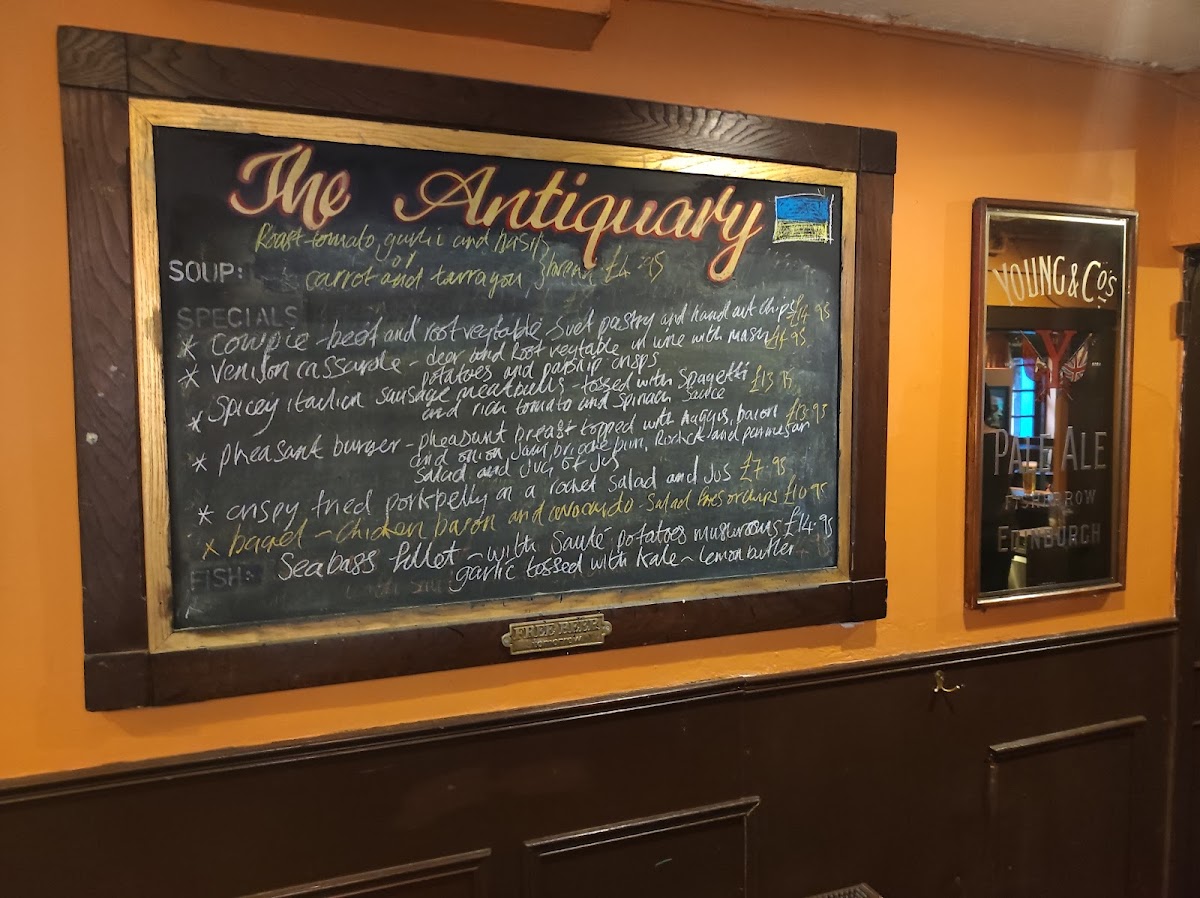 The Antiquary
Roast tomato, garlic and basil
or
SOUP: carrot and tarragon } bread £4.95
SPECIALS
* Cowpie - beef and root vegtable suet pastry and hand cut chips £14.95
* Venison cassarole - deer and Root vegtable in wine with mash £14.95
potatoes and parsnip crisps
* Spicey italian sausage meatballs - tossed with Spagetti £13.95
and rich tomato and spinach sauce
* pheasant burger - pheasant breast topped with haggis, bacon £13.95
and onion Jam, brioche bun, Rocket and parmesan
salad and Jug of Jus
* crispy fried porkbelly on a rocket salad and Jus £7.95
* bagel - Chicken bacon and avocardo - Salad fries or chips £10.95
FISH: Seabass fillet - with Sauté potatoes mushrooms £14.95
garlic tossed with Kale - lemon butter
FREE BEER
TOMORROW
YOUNG & Co's
Y
PALE ALE
FISHERROW
EDINBURGH